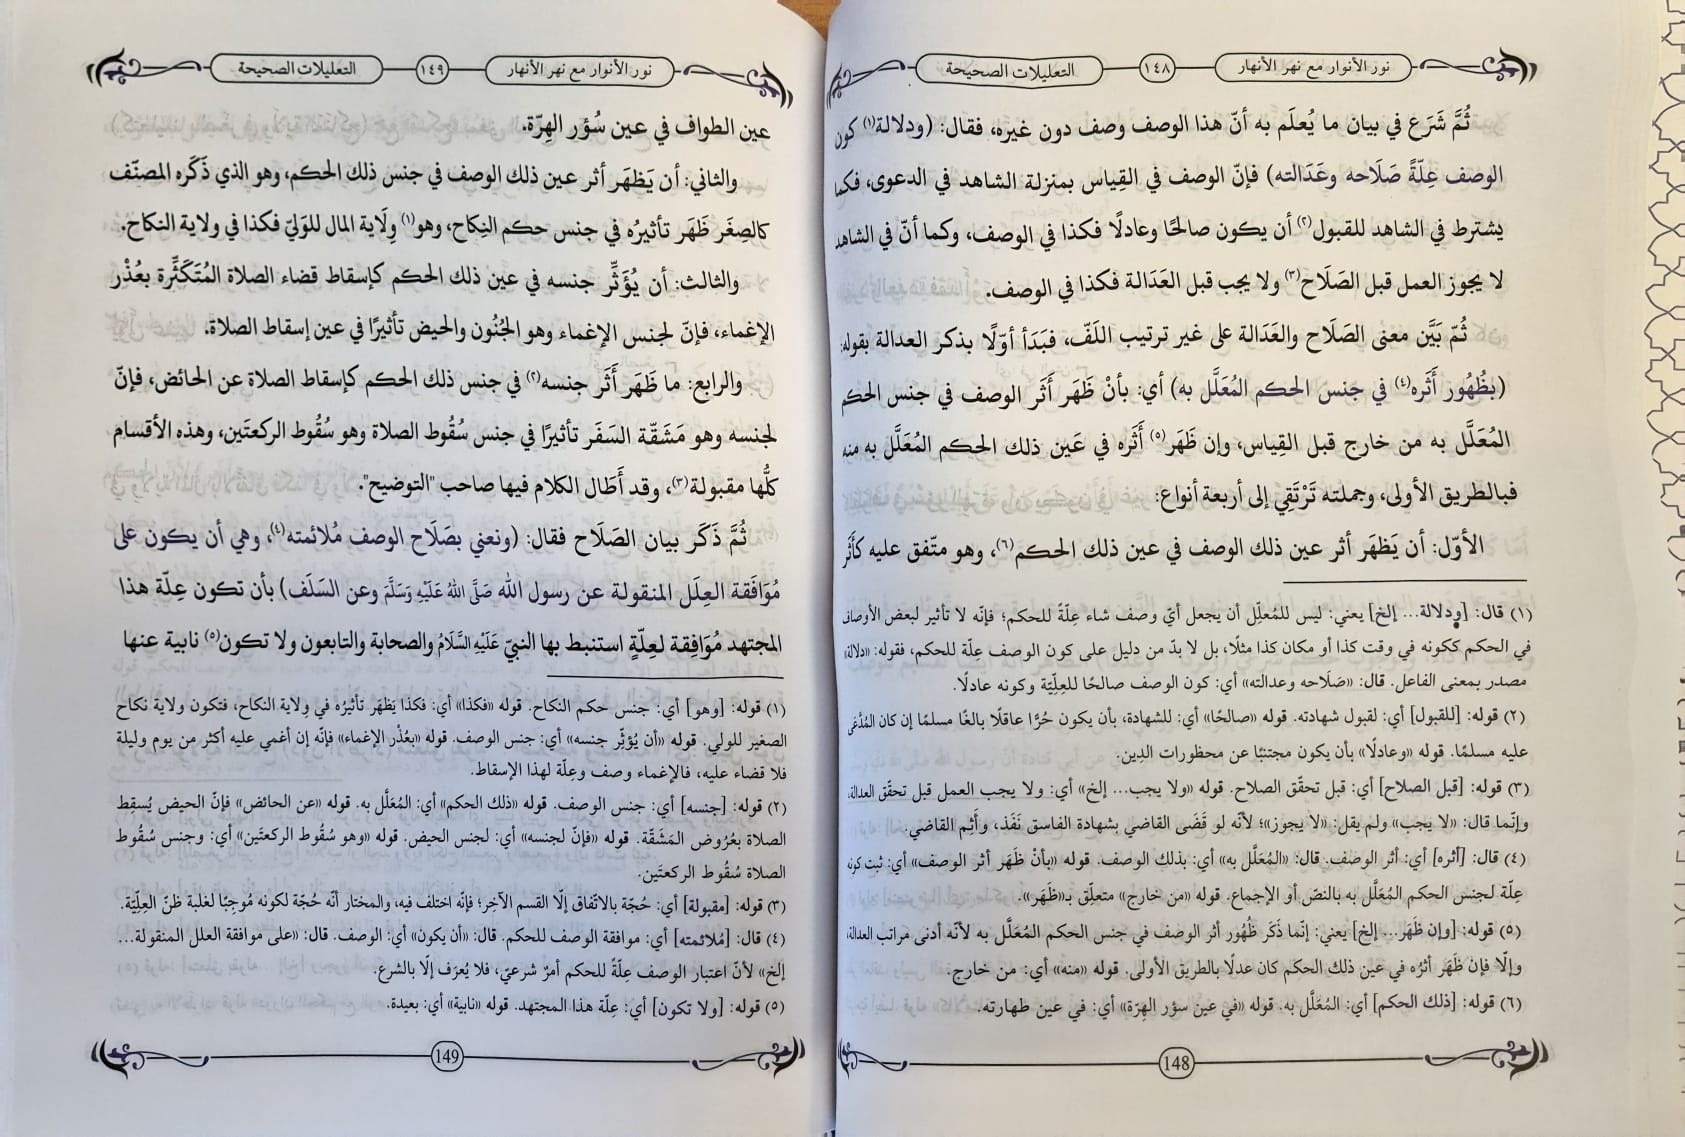 نور الأنوار مع نهر الأنهار ١٤٨ التعليلات الصحيحة
ثُمَّ شَرَع في بيان ما يُعلَم به أنّ هذا الوصف وصف دون غيره، فقال: (ودلالة(١) كون
الوصف عِلّةً صَلَاحه وعَدَالته) فإنّ الوصف في القِياس بمنزلة الشاهد في الدعوى، فكما
يشترط في الشاهد للقبول(٢) أن يكون صالحًا وعادلًا فكذا في الوصف، وكما أنّ في الشاهد
لا يجوز العمل قبل الصَلَاح(٣) ولا يجب قبل العَدَالة فكذا في الوصف.
ثُمّ بَيَّن معنى الصَلَاح والعَدَالة على غير ترتيب اللَفّ، فبَدَأ أوّلًا بذكر العدالة بقوله:
(بظُهُور أَثَره(٤) في جنس الحكم المُعَلَّل به) أي: بأنْ ظَهَر أَثَر الوصف في جنس الحكم
المُعَلَّل به من خارج قبل القِياس، وإن ظَهَر(٥) أَثَره في عَين ذلك الحكم المُعَلَّل به منه
فبالطريق الأولى، وجملته تَرْتَقِي إلى أربعة أنواع:
الأوّل: أن يَظهَر أثر عين ذلك الوصف في عين ذلك الحكم(٦)، وهو متّفق عليه كأَثَر
(١) قال: [ودلالة... إلخ] يعني: ليس للمُعلِّل أن يجعل أيّ وصف شاء عِلّةً للحكم؛ فإنّه لا تأثير لبعض الأوصاف
في الحكم ككونه في وقت كذا أو مكان كذا مثلًا، بل لا بدّ من دليل على كون الوصف عِلّة للحكم، فقوله: «دلالة»
مصدر بمعنى الفاعل. قال: «صَلَاحه وعدالته» أي: كون الوصف صالحًا للعِلِّيّة وكونه عادلًا.
(٢) قوله: [للقبول] أي: لقبول شهادته. قوله «صالحًا» أي: للشهادة، بأن يكون حُرًّا عاقلًا بالغًا مسلمًا إن كان المُدّعَى
عليه مسلمًا. قوله «وعادلًا» بأن يكون مجتنبًا عن محظورات الدِين.
(٣) قوله: [قبل الصلاح] أي: قبل تحقّق الصلاح. قوله «ولا يجب... إلخ» أي: ولا يجب العمل قبل تحقّق العدالة،
وإنّما قال: «لا يجب» ولم يقل: «لا يجوز»؛ لأنّه لو قَضَى القاضي بشهادة الفاسق نَفَذ، وأَثِم القاضي.
(٤) قال: [أثره] أي: أثر الوصف. قال: «المُعَلَّل به» أي: بذلك الوصف. قوله «بأنْ ظَهَر أثر الوصف» أي: ثبت كونه
عِلّة لجنس الحكم المُعَلَّل به بالنصّ أو الإجماع. قوله «من خارج» متعلِّق بـ«ظَهَر».
(٥) قوله: [وإن ظَهَر... إلخ] يعني: إنّما ذَكَر ظُهُور أثر الوصف في جنس الحكم المُعَلَّل به لأنّه أدنى مراتب العدالة،
وإلّا فإن ظَهَر أثرُه في عين ذلك الحكم كان عدلًا بالطريق الأولى. قوله «منه» أي: من خارج.
(٦) قوله: [ذلك الحكم] أي: المُعَلَّل به. قوله «في عين سؤر الهِرّة» أي: في عين طهارته.
148
نور الأنوار مع نهر الأنهار ١٤٩ التعليلات الصحيحة
عين الطواف في عين سُؤر الهِرّة.
والثاني: أن يَظهَر أثر عين ذلك الوصف في جنس ذلك الحكم، وهو الذي ذَكَره المصنّف
كالصِغَر ظَهَر تأثيرُه في جنس حكم النِكاح، وهو(١) وِلَاية المال للوَليّ فكذا في ولاية النكاح.
والثالث: أن يُؤَثِّر جنسه في عين ذلك الحكم كإسقاط قضاء الصلاة المُتَكَثِّرة بعُذْر
الإغماء، فإنّ لجنس الإغماء وهو الجُنُون والحيض تأثيرًا في عين إسقاط الصلاة.
والرابع: ما ظَهَر أَثَر جنسه(٢) في جنس ذلك الحكم كإسقاط الصلاة عن الحائض، فإنّ
لجنسه وهو مَشَقّة السَفَر تأثيرًا في جنس سُقُوط الصلاة وهو سُقُوط الركعتَين، وهذه الأقسام
كلُّها مقبولة(٣)، وقد أَطَال الكلام فيها صاحب "التوضيح".
ثُمَّ ذَكَر بيان الصَلَاح فقال: (ونعني بصَلَاح الوصف مُلائمته(٤)، وهي أن يكون على
مُوَافَقة العِلَل المنقولة عن رسول الله صَلَّى اللهُ عَلَيْهِ وَسَلَّمَ وعن السَلَف) بأن تكون عِلّة هذا
المجتهد مُوَافِقة لعِلّةٍ استنبط بها النبيّ عَلَيْهِ السَّلَامُ والصحابة والتابعون ولا تكون(٥) نابية عنها
(١) قوله: [وهو] أي: جنس حكم النكاح. قوله «فكذا» أي: فكذا يَظهَر تأثيرُه في وِلاية النكاح، فتكون ولاية نكاح
الصغير للولي. قوله «أن يُؤثِّر جنسه» أي: جنس الوصف. قوله «بعُذْر الإغماء» فإنّه إن أغمي عليه أكثر من يوم وليلة
فلا قضاء عليه، فالإغماء وصف وعِلّة لهذا الإسقاط.
(٢) قوله: [جنسه] أي: جنس الوصف. قوله «ذلك الحكم» أي: المُعَلَّل به. قوله «عن الحائض» فإنّ الحيض يُسقِط
الصلاة بعُرُوض المَشَقّة. قوله «فإنّ لجنسه» أي: لجنس الحيض. قوله «وهو سُقُوط الركعتَين» أي: وجنس سُقُوط
الصلاة سُقُوط الركعتَين.
(٣) قوله: [مقبولة] أي: حُجّة بالاتّفاق إلّا القسم الآخِر؛ فإنّه اختلف فيه، والمختار أنّه حُجّة لكونه مُوجِبًا لغلبة ظنّ العِلِّيّة.
(٤) قال: [مُلائمته] أي: موافقة الوصف للحكم. قال: «أن يكون» أي: الوصف. قال: «على موافقة العلل المنقولة...
إلخ» لأنّ اعتبار الوصف عِلّةً للحكم أمرٌ شرعيّ، فلا يُعرَف إلّا بالشرع.
(٥) قوله: [ولا تكون] أي: عِلّة هذا المجتهد. قوله «نابية» أي: بعيدة.
149